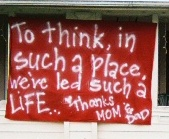 To think, in
such a place,
we've led such a
LiFE... *Thanks
MOM &
DAD